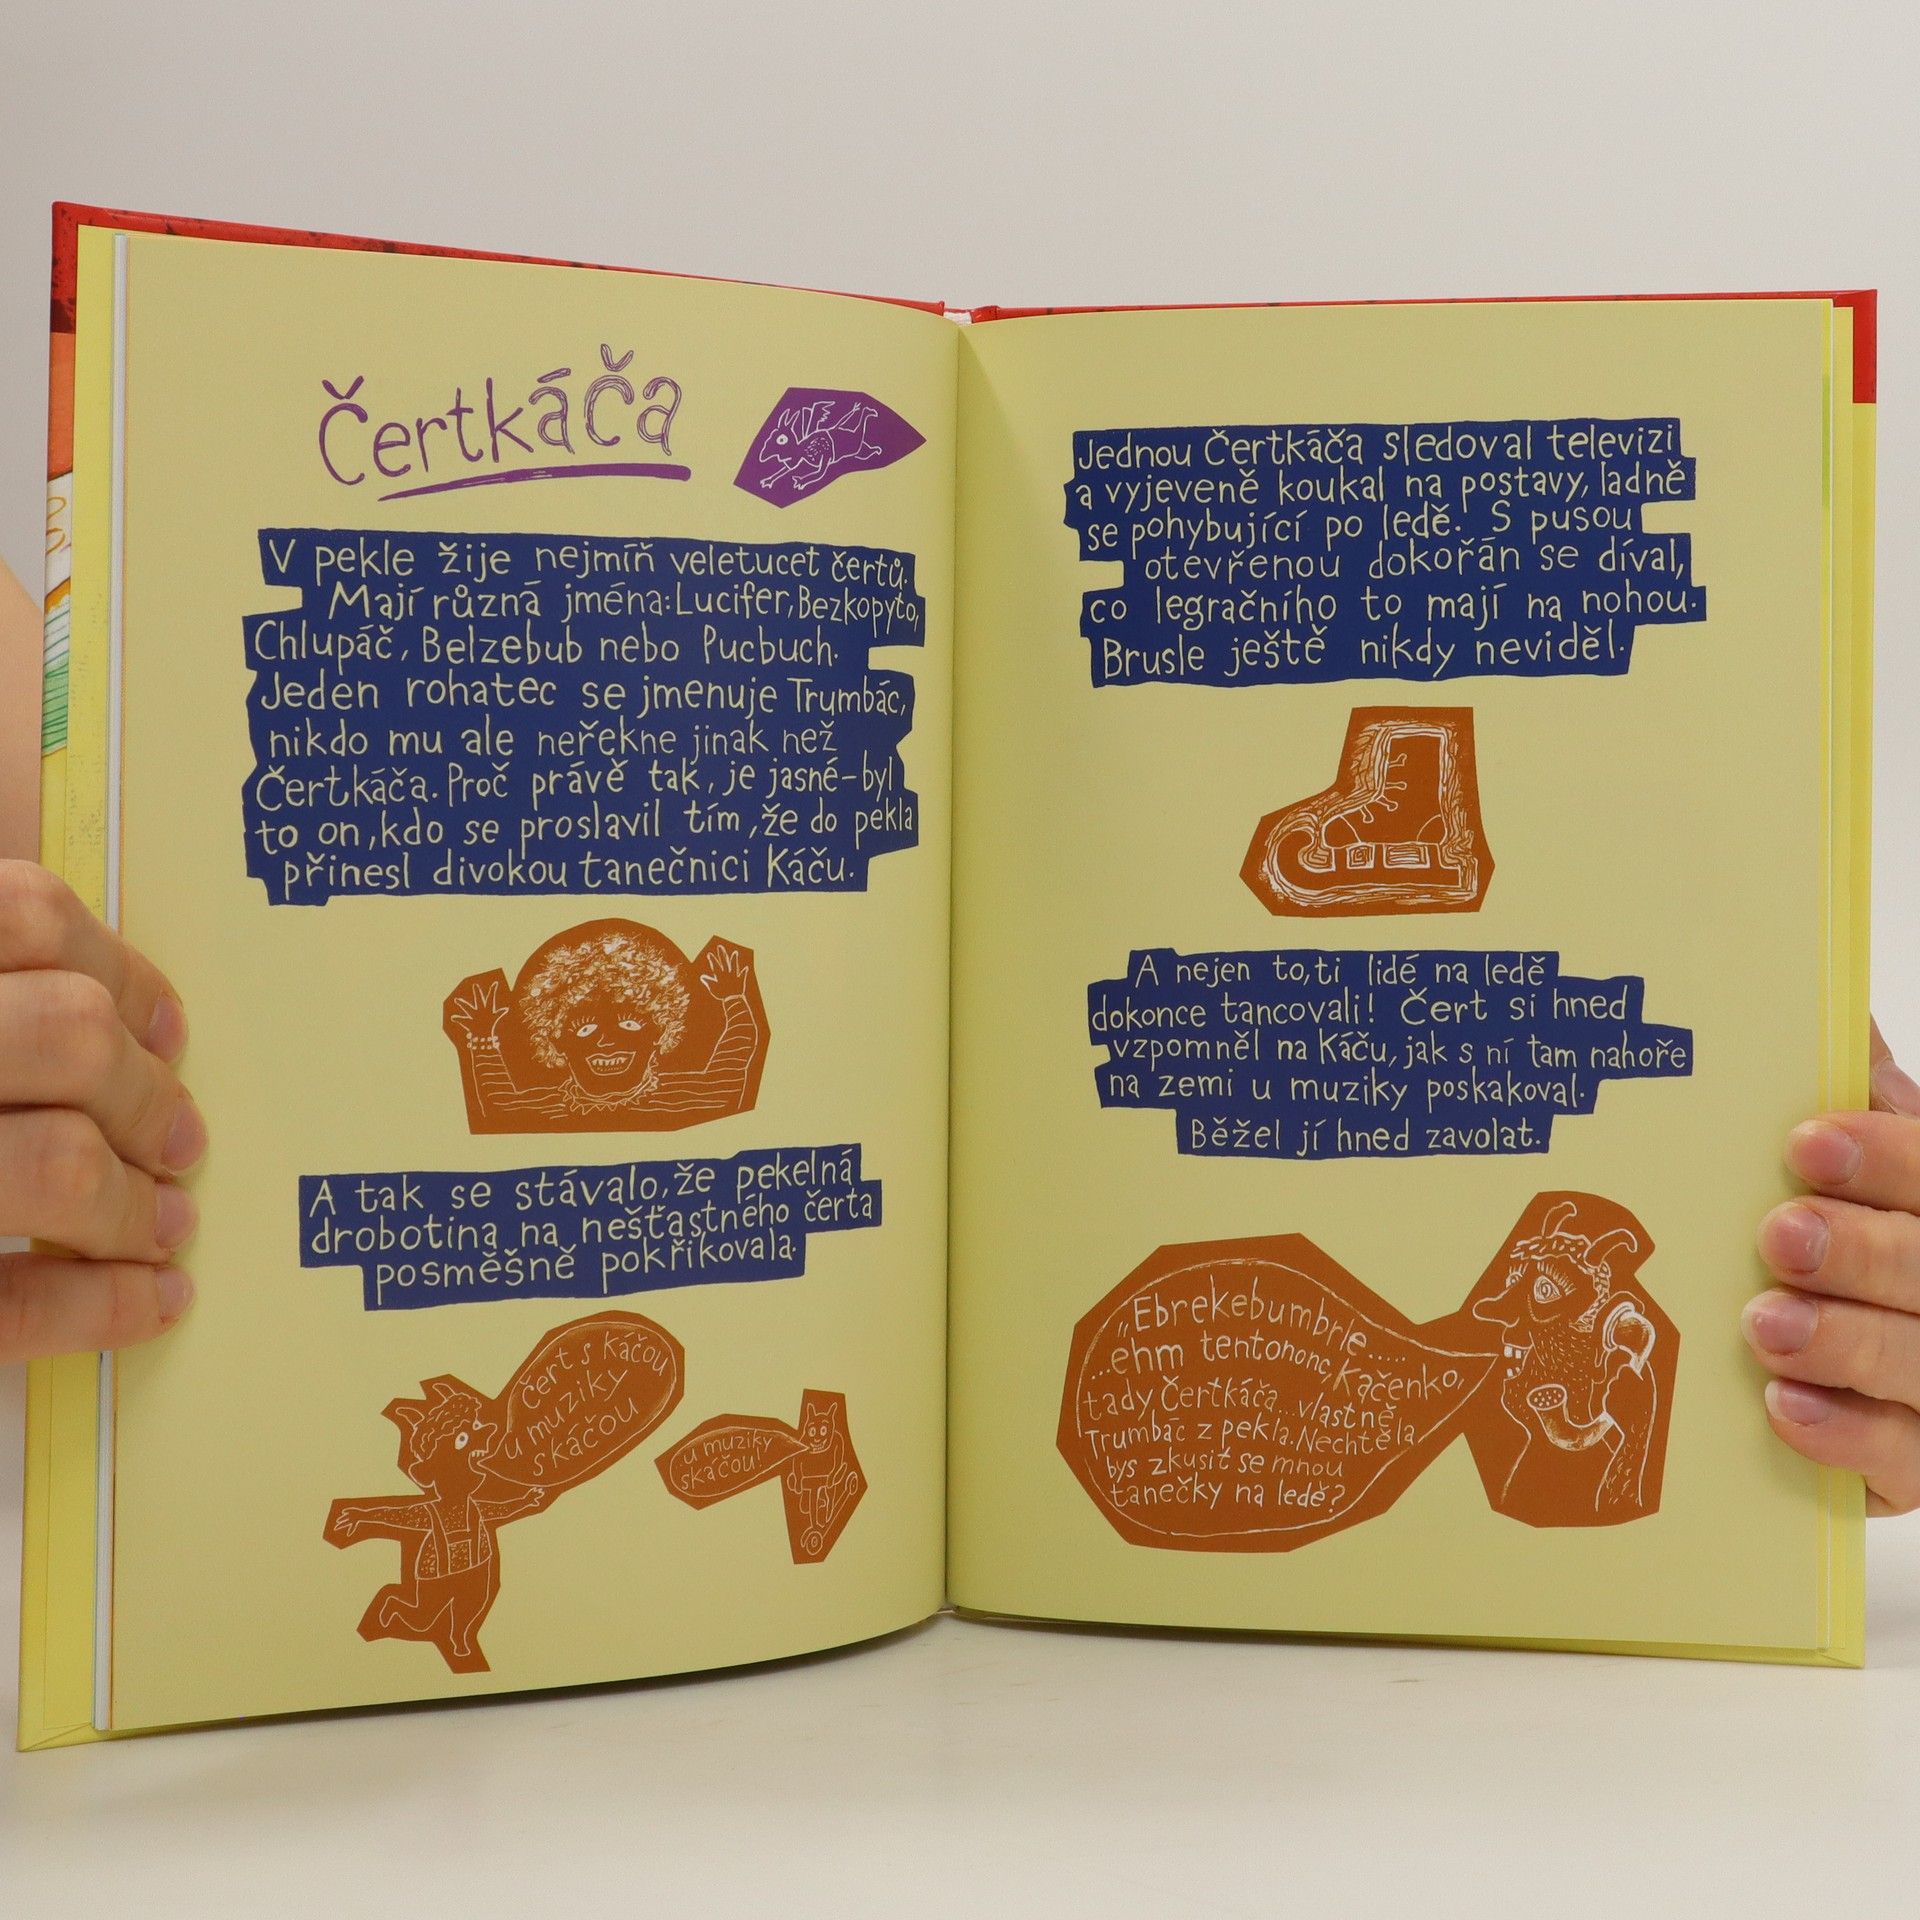 Čertkáča
V pekle žije nejmíň veletucet čertů.
Mají různá jména: Lucifer, Bezkopyto,
Chlupáč, Belzebub nebo Pucbuch.
Jeden rohatec se jmenuje Trumbác,
nikdo mu ale neřekne jinak než
Čertkáča. Proč právě tak, je jasné – byl
to on, kdo se proslavil tím, že do pekla
přinesl divokou tanečnici Káču.
A tak se stávalo, že pekelná
drobotina na nešťastného čerta
posměšně pokřikovala.
čert s káčou
u muziky
skáčou
u muziky
skáčou!
Jednou Čertkáča sledoval televizi
a vyjeveně koukal na postavy, ladně
se pohybující po ledě. S pusou
otevřenou dokořán se díval,
co legračního to mají na nohou.
Brusle ještě nikdy neviděl.
A nejen to, ti lidé na ledě
dokonce tancovali! Čert si hned
vzpomněl na Káču, jak s ní tam nahoře
na zemi u muziky poskakoval.
Běžel jí hned zavolat.
„Ebrekebumbrle.....
...ehm tentononc, Kačenko,
tady Čertkáča...vlastně
Trumbác z pekla. Nechtěla
bys zkusit se mnou
tanečky na ledě?